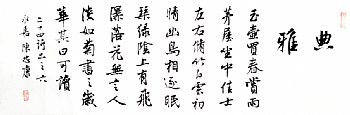 典雅
玉壶買春賞雨
茅屋坐中佳士
左右脩竹白雲初
晴幽鳥相逐眠
琴綠陰上有飛
瀑落花無言人
淡如菊書之歲
華其曰可讀
二十四詩品之六